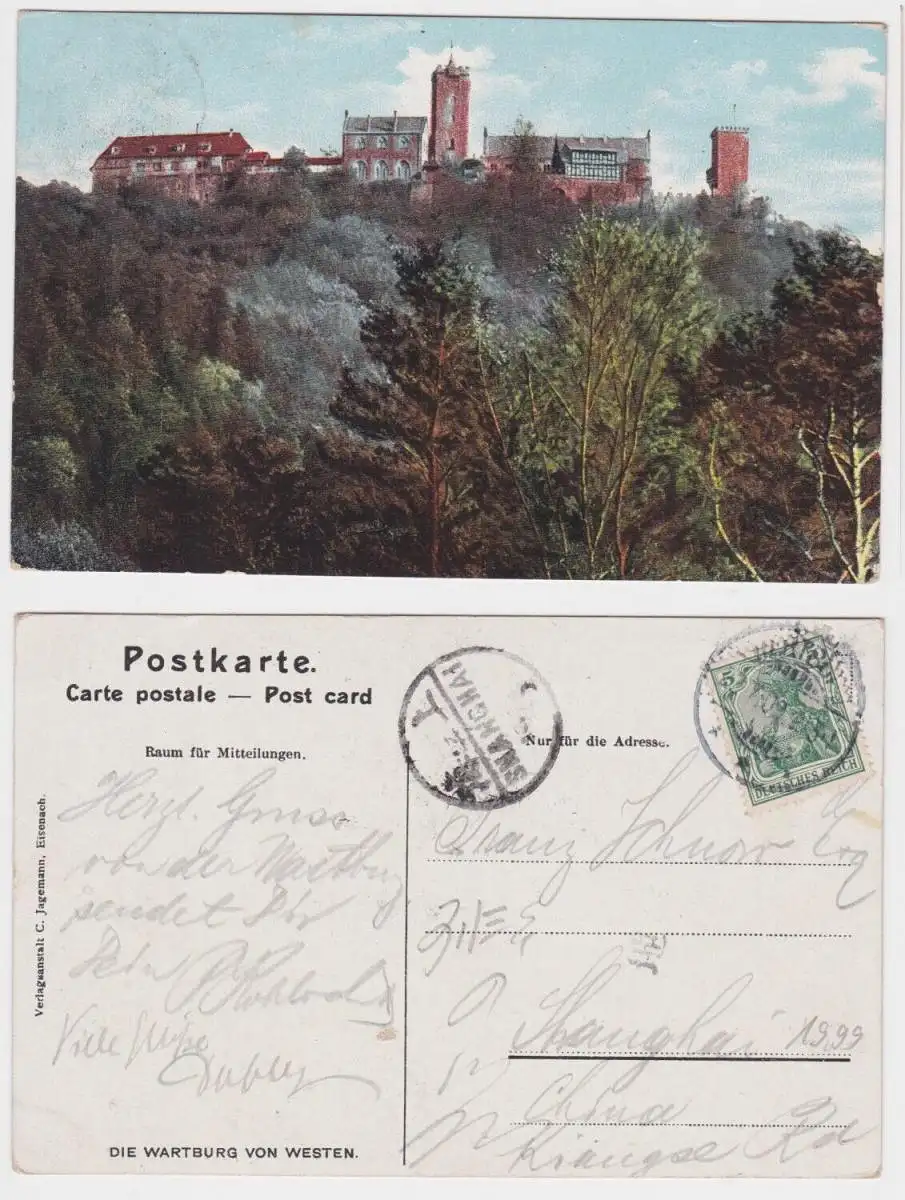 Postkarte.
Carte postale — Post card
Raum für Mitteilungen.
Nur für die Adresse.
SHANGHAI
5
DEUTSCHES REICH
Verlagsanstalt C. Jagemann, Eisenach.
Herzl. Gruss
von der Wartburg
sendet Dir
Dein
Viele Grüße
Franz
Shanghai
1999
China
Kiangse Rd
DIE WARTBURG VON WESTEN.